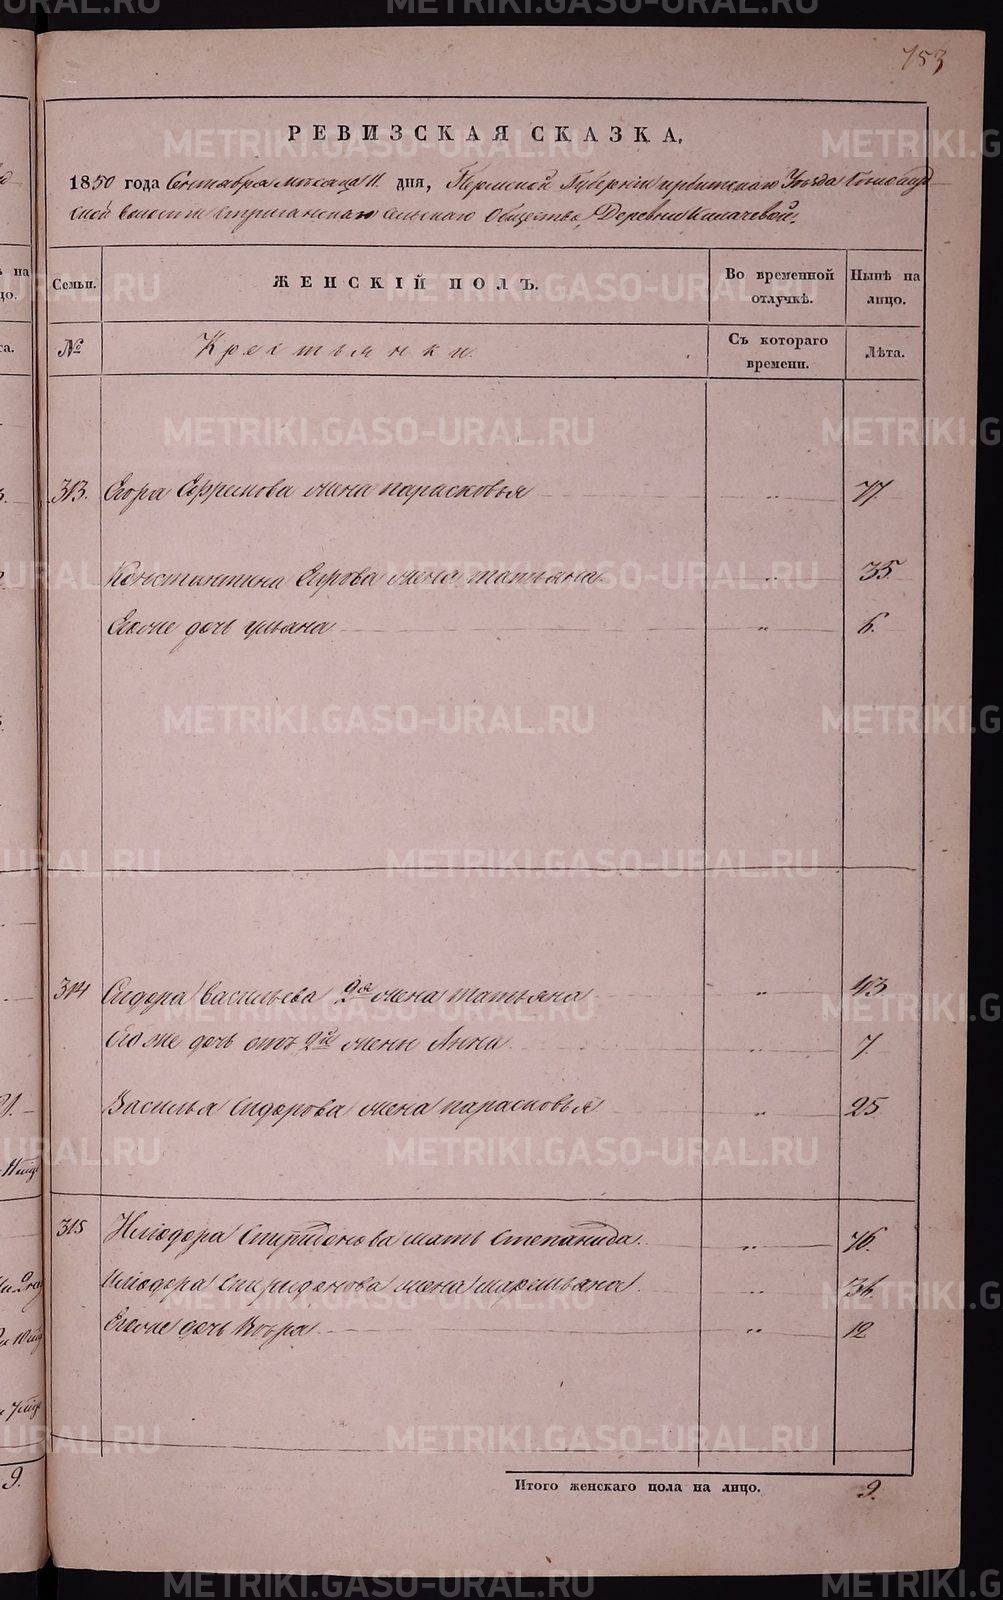 753
РЕВИЗСКАЯ СКАЗКА,
1850 года Сентября месяца 11. дня, Пермской Губернии Ирбитскаго Уезда
ской волости Стриганскаго сельскаго Общества, Деревни Киначевой.
Семьи. ЖЕНСКІЙ ПОЛЪ. Во временной отлучкѣ. Нынѣ на лицо.
№ Крестьянки. Съ котораго времени. Лѣта.
313. Егора Ефремова жена парасковья " 77
Константина Егорова жена татьяна " 35
Егоже дочь ульяна " 6.
314 Сидора васильева 2я жена татьяна " 43
Его же дочь отъ 2й жены Анна " 7
Василья Сидорова жена парасковья " 25
315 Иліодора Спиридонова мать Степанида. " 76.
Иліодора Спиридонова жена маремьяна " 36.
Егоже дочь " 12
Итого женскаго пола на лицо. 9.
METRIKI.GASO-URAL.RU